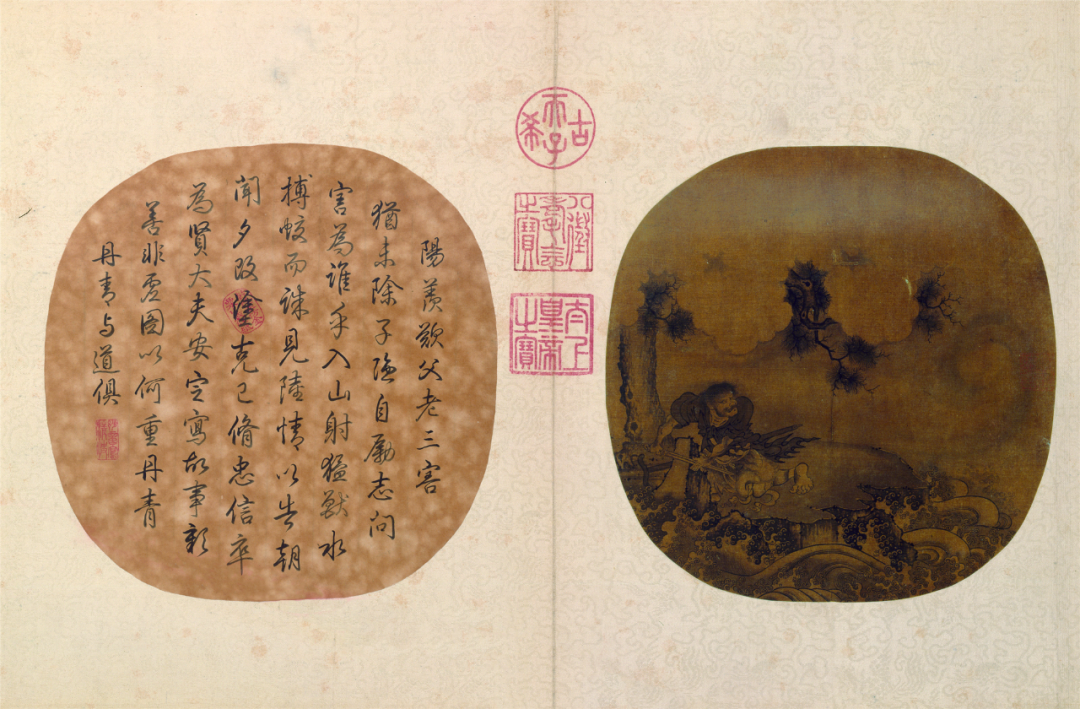 陽羨歎父老三害
猶未除子隱自勵志問
害為誰乎入山射猛獸水
搏蛟而誅見陸情以告朝
聞夕改塗克己脩忠信卒
為賢大夫安定寫故事彰
善非虛圖以何重丹青
丹青与道俱
古希天子
八徵耄念之寶
太上皇帝之寶